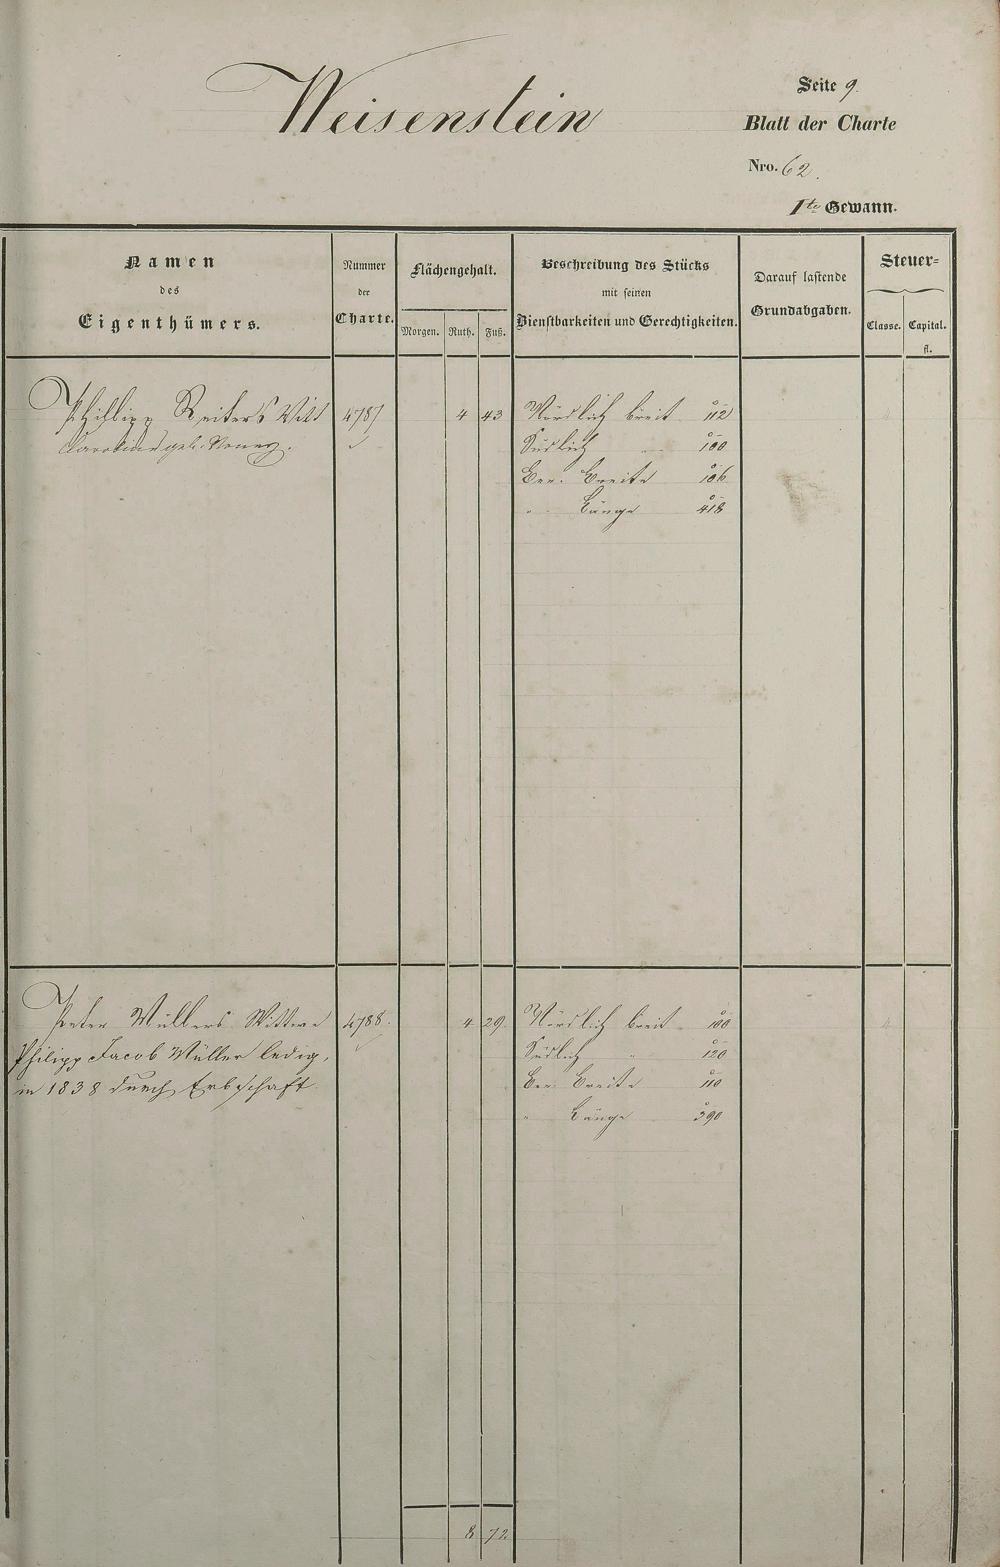 Weisenstein
Seite 9.
Blatt der Charte
Nro. 62.
1te Gewann.
Namen
des
Eigenthümers.
Nummer
der
Charte.
Flächengehalt.
Morgen. Ruth. Fuß.
Beschreibung des Stücks
mit seinen
Dienstbarkeiten und Gerechtigkeiten.
Darauf lastende
Grundabgaben.
Steuer-
Classe. Capital.
fl.
Philipp Reiters Witt 4787 4 43 Nördlich breit 112
geb. Südlich " 100
Ber. Breite 106
" Länge 418
Peter Müllers Wittwe 4788. 4 29. Nördlich breit 100
Philipp Jacob Müller ledig, Südlich " 120
in 1838 durch Erbschaft. Ber. Breite 110
" Länge 390
8 72